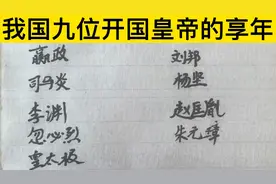 我国九位开国皇帝的享年
嬴政 刘邦
司马炎 杨坚
李渊 赵匡胤
忽必烈 朱元璋
皇太极